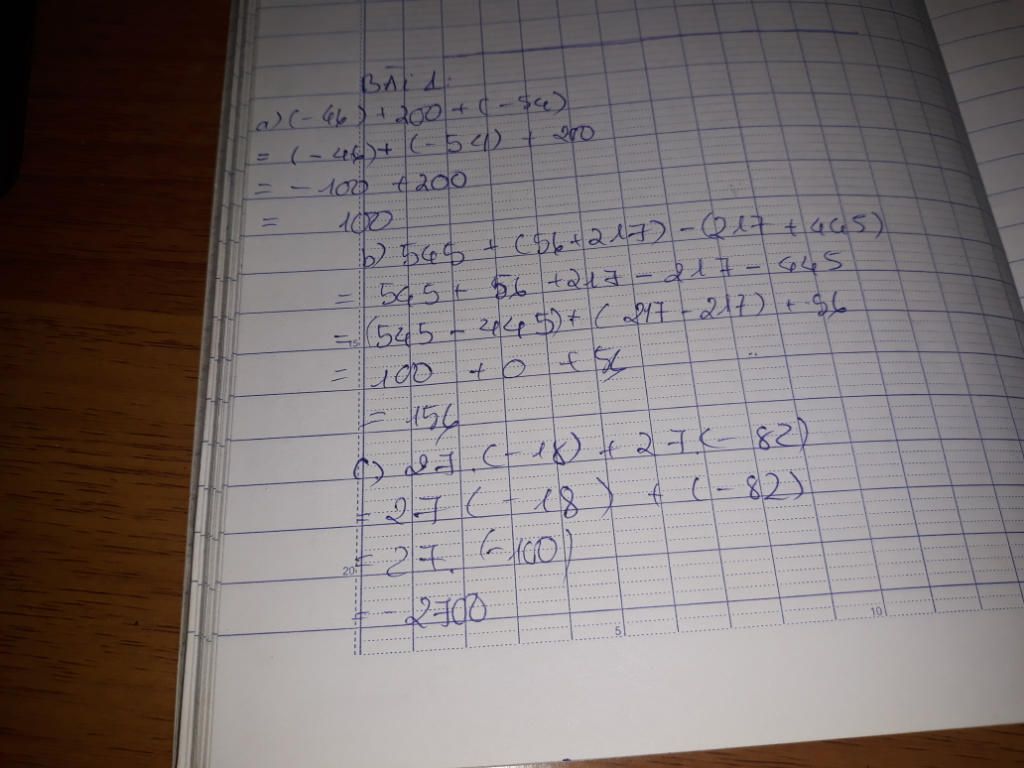 BÀi 1:
a) (-46) + 200 + (-54)
= (-46) + (-54) + 200
= -100 + 200
= 100
b) 545 + (56+217) - (217 + 445)
= 545 + 56 + 217 - 217 - 445
= (545 - 445) + (217 - 217) + 56
= 100 + 0 + 56
= 156
c) 27 . (-18) + 27. (- 82)
= 27 (-18) + (-82)
= 27. (-100)
20
= - 2700
5
10